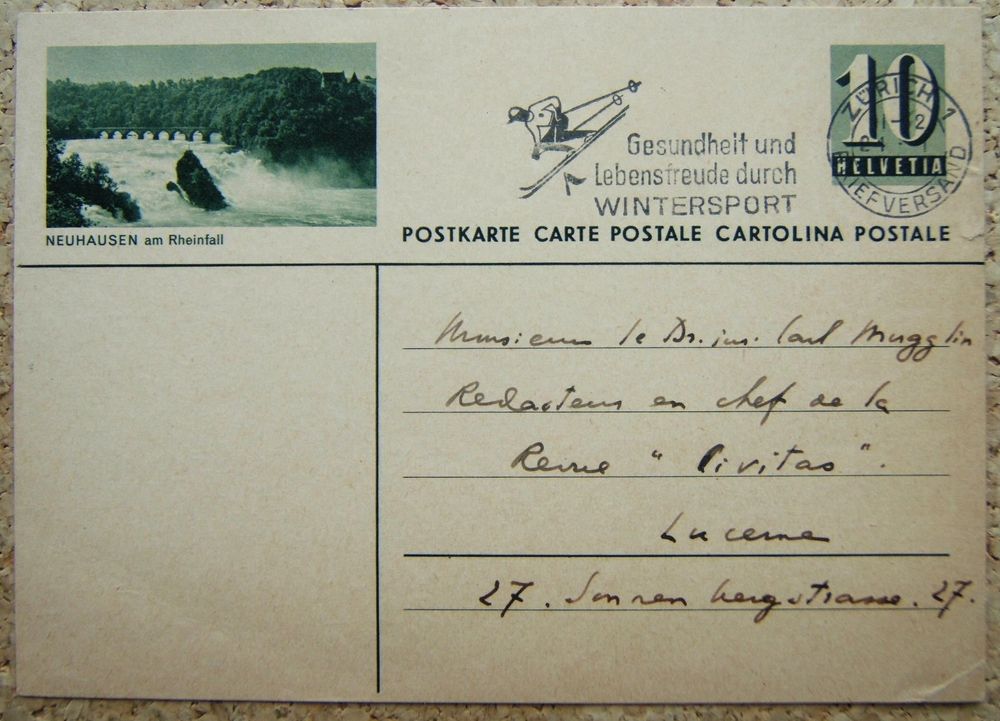 NEUHAUSEN am Rheinfall
Gesundheit und
Lebensfreude durch
WINTERSPORT
10
HELVETIA
ZÜRICH 1
BRIEFVERSAND
POSTKARTE CARTE POSTALE CARTOLINA POSTALE
Monsieur le Dr. jur. Carl Mugglin
Redacteur en chef de la
Revue "Civitas".
Lucerne
27. Sonnenbergstrasse. 27.